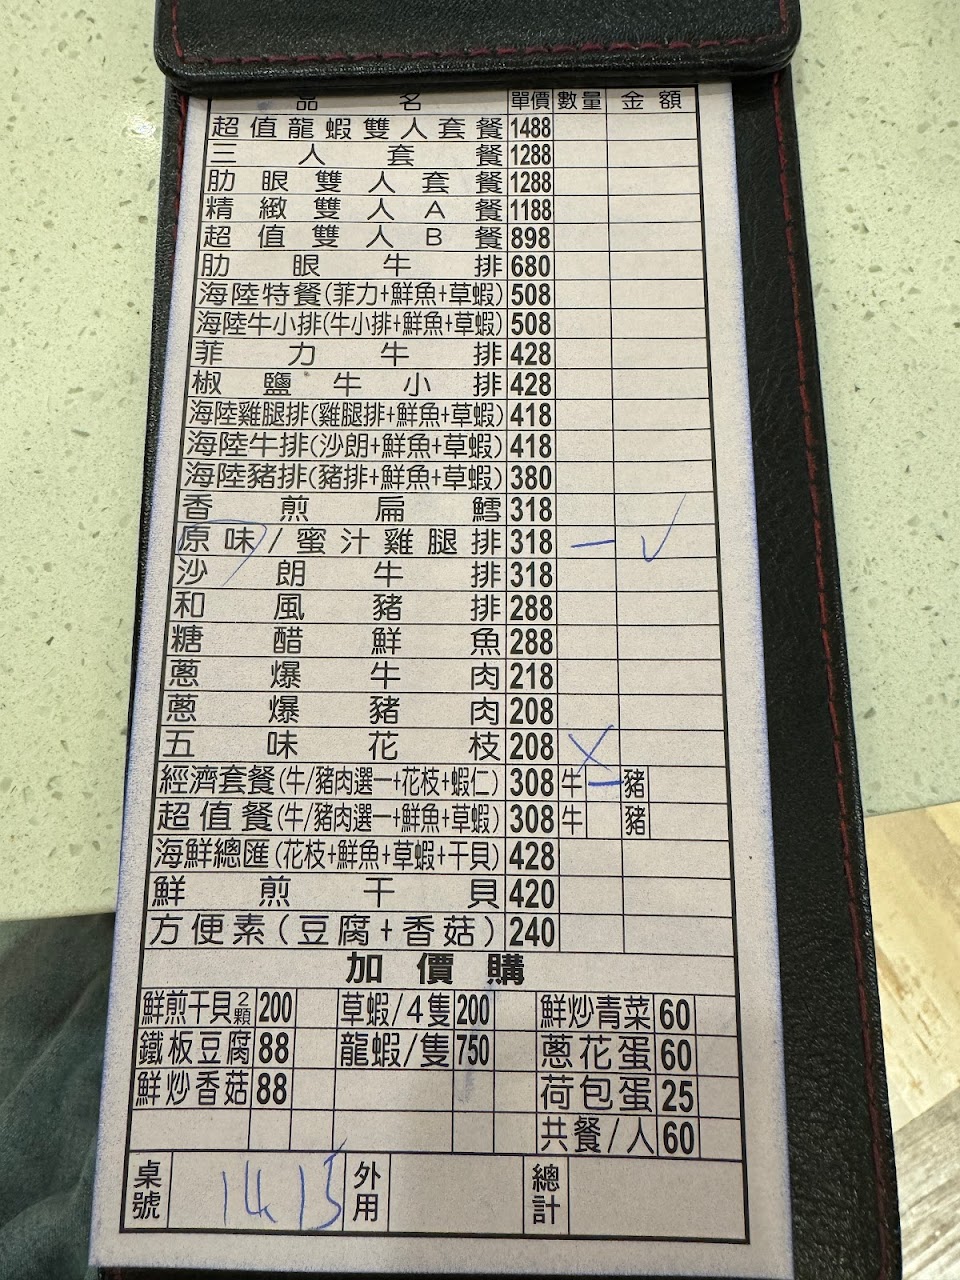 品名 單價 數量 金額
超值龍蝦雙人套餐 1488
三人套餐 1288
肋眼雙人套餐 1288
精緻雙人A餐 1188
超值雙人B餐 898
肋眼牛排 680
海陸特餐(菲力+鮮魚+草蝦) 508
海陸牛小排(牛小排+鮮魚+草蝦) 508
菲力牛排 428
椒鹽牛小排 428
海陸雞腿排(雞腿排+鮮魚+草蝦) 418
海陸牛排(沙朗+鮮魚+草蝦) 418
海陸豬排(豬排+鮮魚+草蝦) 380
香煎扁鱈 318
原味/蜜汁雞腿排 318 一 ✓
沙朗牛排 318
和風豬排 288
糖醋鮮魚 288
蔥爆牛肉 218
蔥爆豬肉 208
五味花枝 208 X
經濟套餐(牛/豬肉選一+花枝+蝦仁) 308 牛 一 豬
超值餐(牛/豬肉選一+鮮魚+草蝦) 308 牛 豬
海鮮總匯(花枝+鮮魚+草蝦+干貝) 428
鮮煎干貝 420
方便素(豆腐+香菇) 240
加價購
鮮煎干貝2顆 200 草蝦/4隻 200 鮮炒青菜 60
鐵板豆腐 88 龍蝦/隻 750 蔥花蛋 60
鮮炒香菇 88 荷包蛋 25
共餐/人 60
桌號 14.15 外用 總計